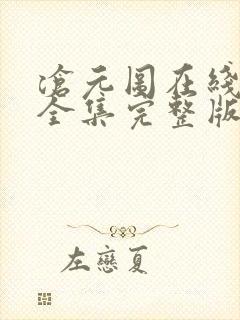 滄元图在线
全集完整版
左戀夏